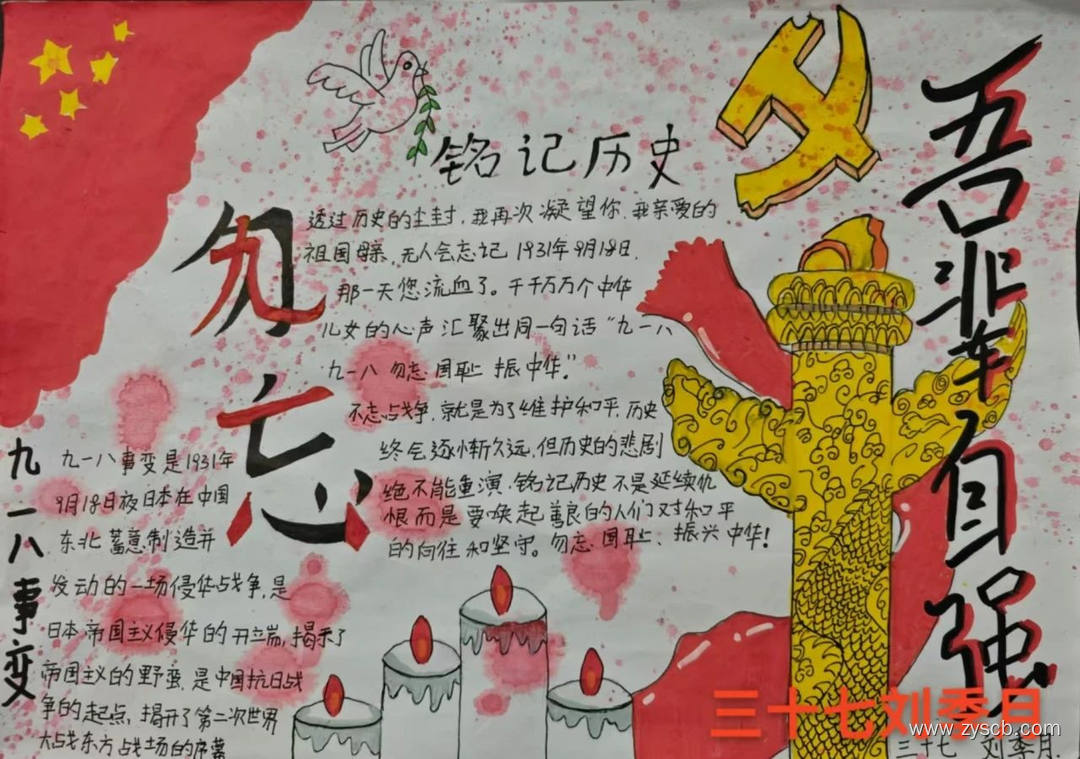 铭记历史
透过历史的尘封，我再次凝望你，我亲爱的
祖国母亲，无人会忘记1931年9月18日，
那一天您流血了。千千万万个中华
儿女的心声汇聚出同一句话“九一八
九一八 勿忘国耻 振中华”
不忘战争，就是为了维护和平，历史
终会逐惭久远，但历史的悲剧
绝不能重演，铭记历史不是延续仇
恨而是要唤起善良的人们对和平
的向往和坚守。勿忘国耻、振兴中华！
勿忘
九一八事变
九一八事变是1931年
9月18日夜日本在中国
东北蓄意制造并
发动的一场侵华战争，是
日本帝国主义侵华的开端，揭示了
帝国主义的野蛮，是中国抗日战
争的起点，揭开了第二次世界
大战东方战场的序幕
吾辈自强
三十七刘季月
www.zyscb.com
三十七 刘季月